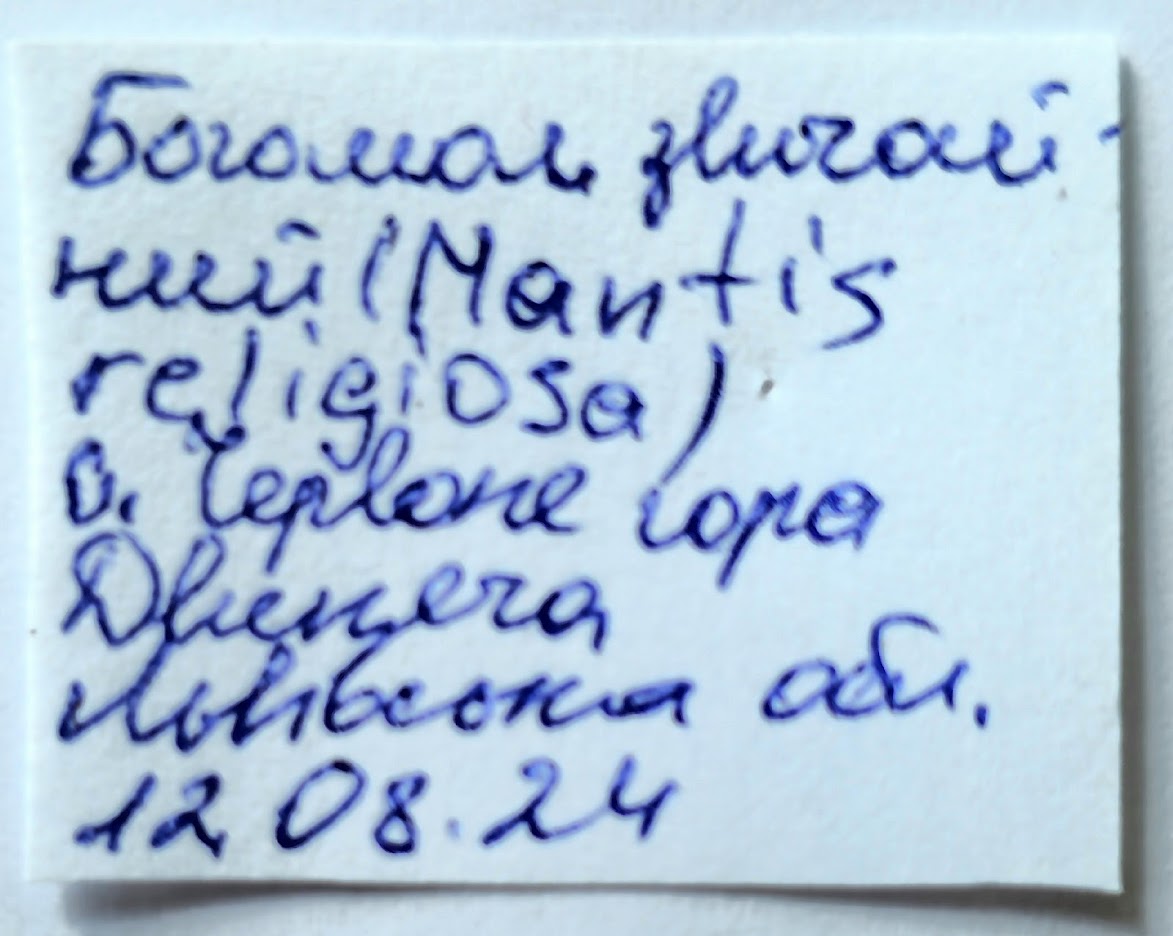 Богомол звичай-
ний (Mantis
religiosa)
о. Червоне гора
Двинеча
Львівська обл.
12.08.24